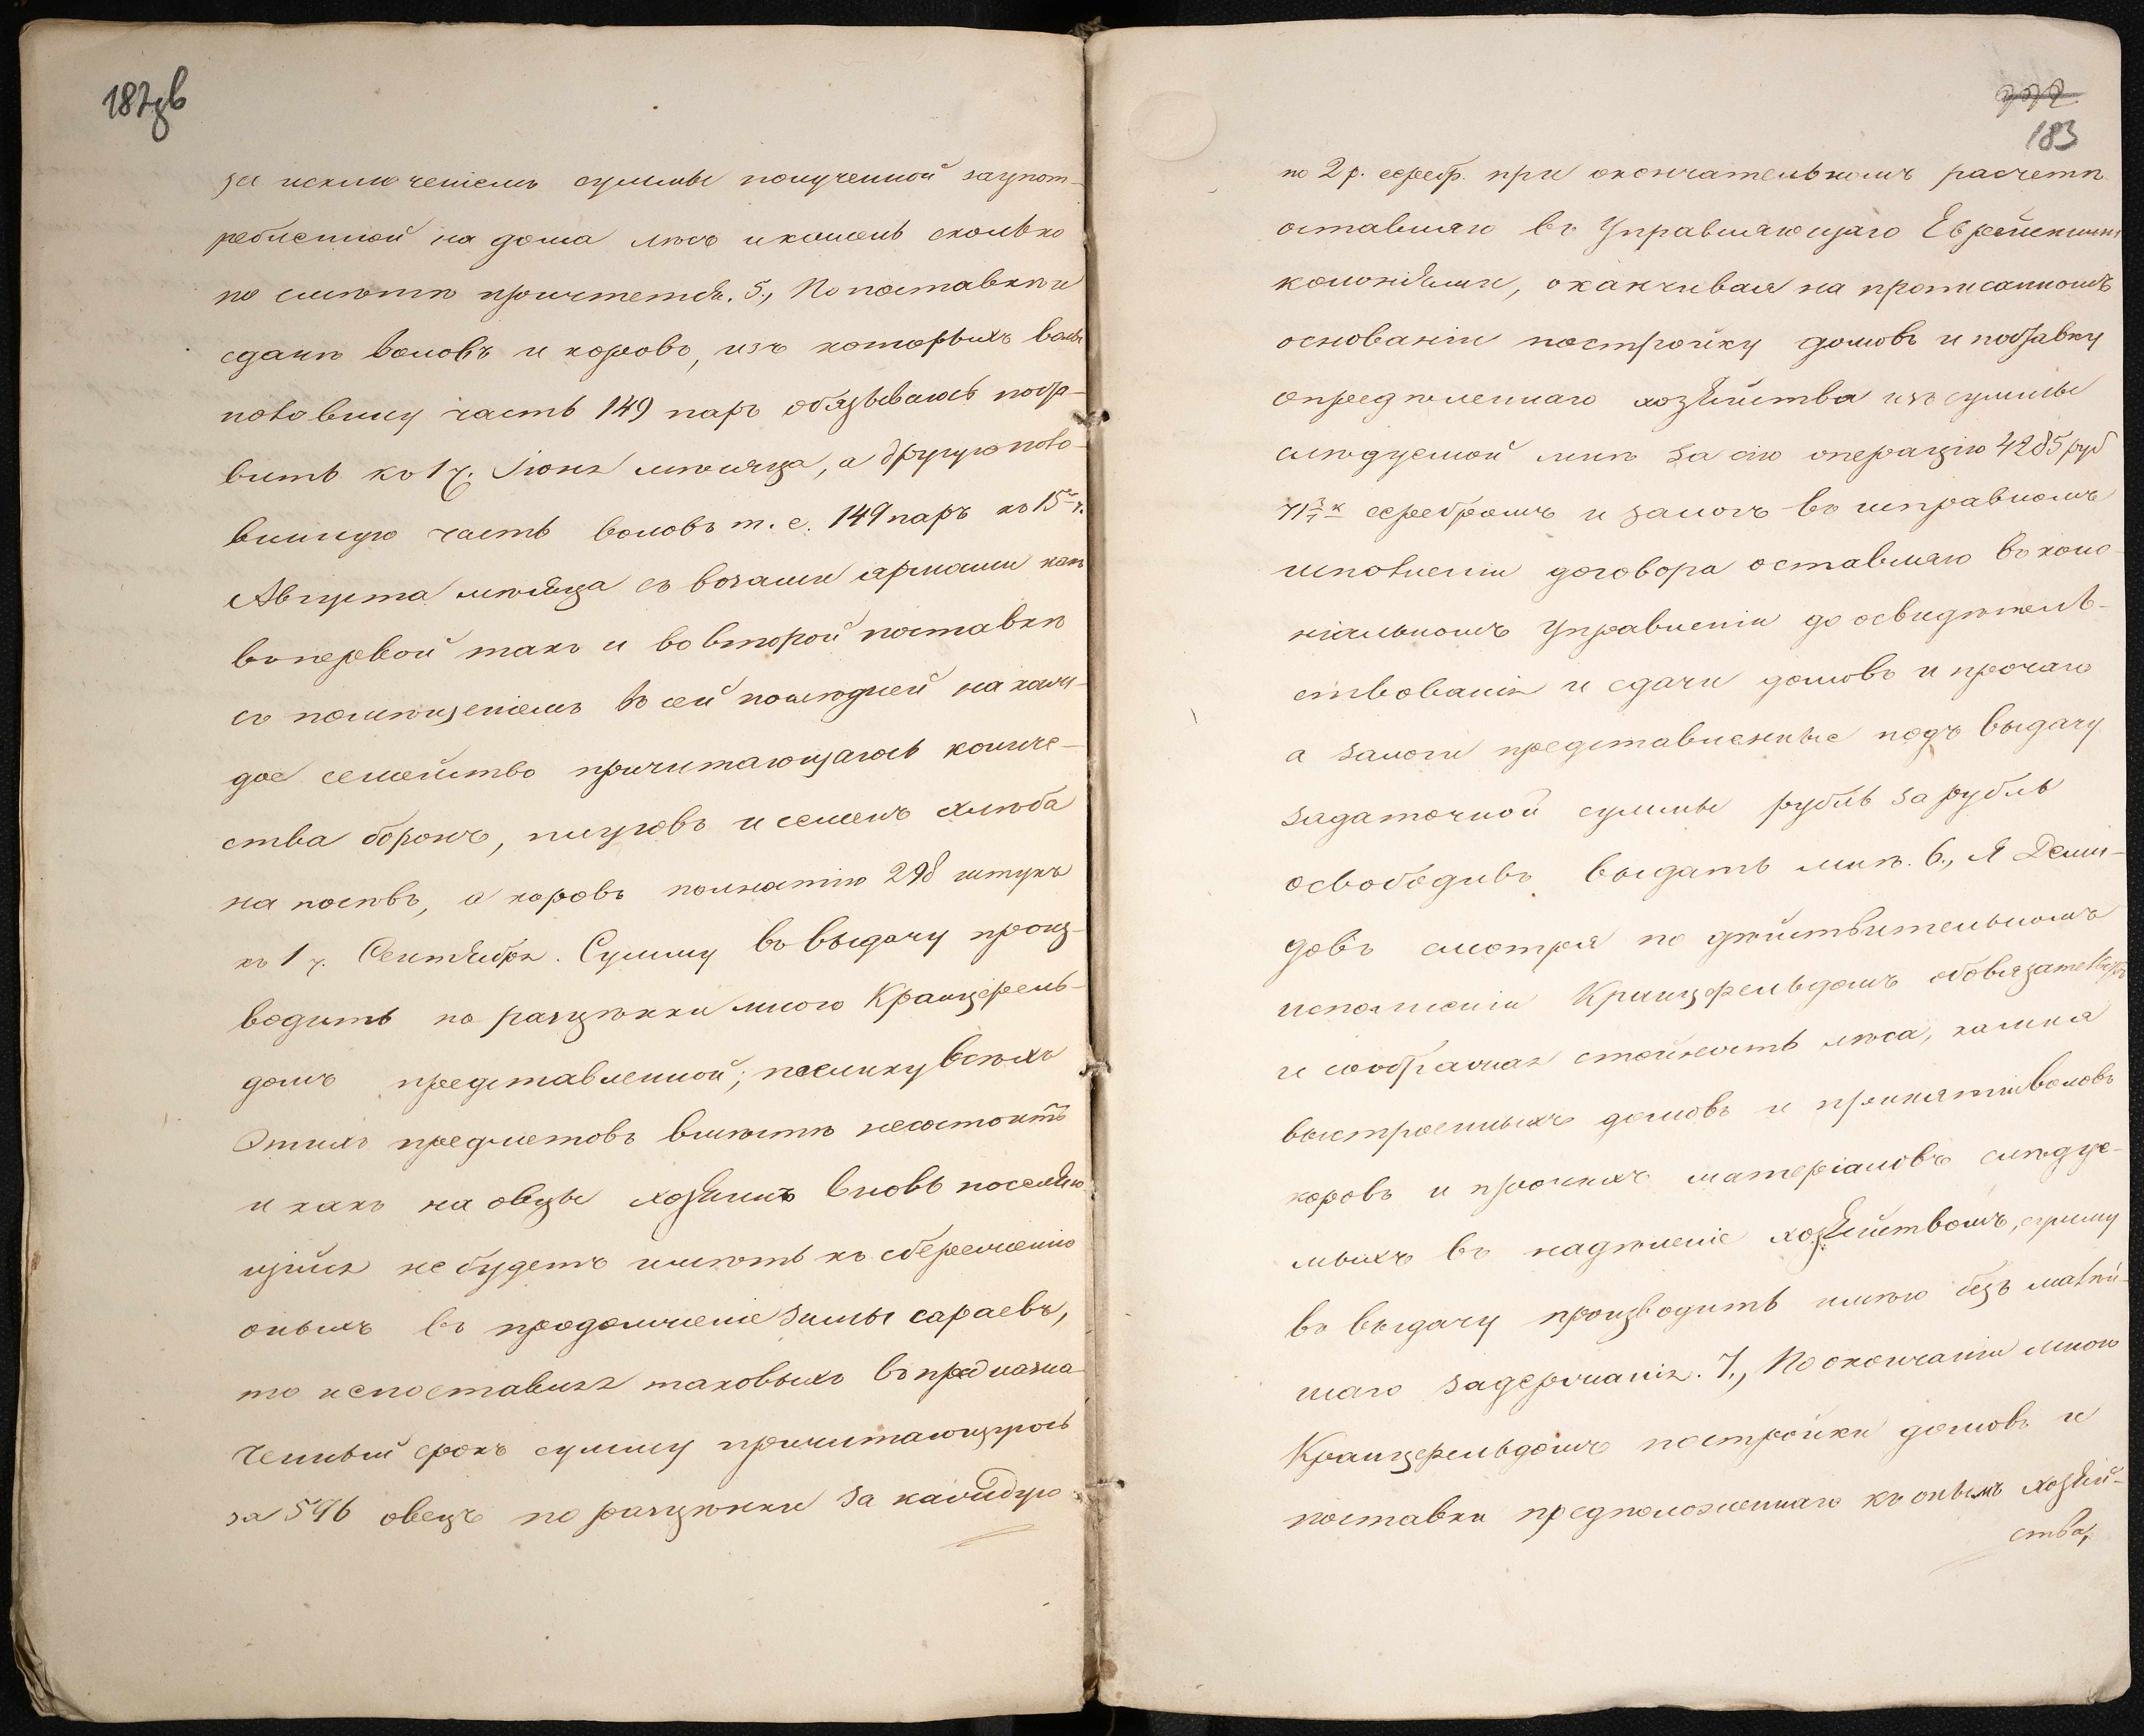 182зв
за исключеніемъ суммы полученной заупот-
ребленной на дома лѣсъ и камень сколько
по смѣтѣ причтется. 5., По поставкѣ и
сдачѣ воловъ и коровъ, изъ которыхъ воловъ
половину часть 149 паръ обязываюсь поста-
вить къ 1 ч. Іюня мѣсяца, а другую поло-
винную часть воловъ т. е. 149 паръ къ 15е ч.
Августа мѣсяца съ возами ярмами какъ
въ первой такъ и во второй поставкѣ
съ помѣщеніемъ въ сей послѣдней на каж-
дое семейство причитающагось количе-
ства боронъ, плуговъ и семенъ хлѣба
на посѣвъ, а коровъ полнатію 298 штукъ
къ 1 ч. Сентября. Сумму въ выдачу произ-
водить по разцѣнки мною Кранцфель-
домъ представленной; поелику всѣхъ
Этихъ предметовъ вмѣстѣ несостоитъ
и какъ на овцы хозяинъ вновь поселяю-
щійся не будетъ имѣть къ сбереженію
оныхъ въ продолженіе зимы сараевъ,
то непоставляя таковыхъ въ предназна-
ченный срокъ сумму причитающуюсь
за 596 овецъ по разцѣнки за каждую
183
по 2 р. серебр. при окончательномъ расчетѣ
оставляю въ Управляющаго Еврейскими
колоніями, оканчивая на прописанномъ
основаніи постройку домовъ и поставку
опредѣленнаго хозяйства изъ суммы
слѣдуемой мнѣ за сію операцію 4285 руб
71 3/7 к серебромъ и залогъ въ исправномъ
исполненіи договора оставляю въ коло-
ніальномъ Управленіи до освидѣтель-
ствованія и сдачи домовъ и прочаго
а залоги представленные подъ выдачу
задаточной суммы рубль за рубль
освободивъ выдать мнѣ. 6., Я Деми-
довъ смотря по дѣйствительномъ
исполненіи Кранцфельдомъ обовязательствъ
и соображая стоимость лѣса, камня
выстроенныхъ домовъ и принятіи воловъ
коровъ и прочихъ матеріаловъ слѣдуе-
мыхъ въ надѣленіе хозяйствомъ, сумму
въ выдачу производить имѣю безъ малѣй-
шаго задержанія. 7., По окончаніи мною
Кранцфельдомъ постройки домовъ и
поставки предположеннаго къ онымъ хозяй-
ства,